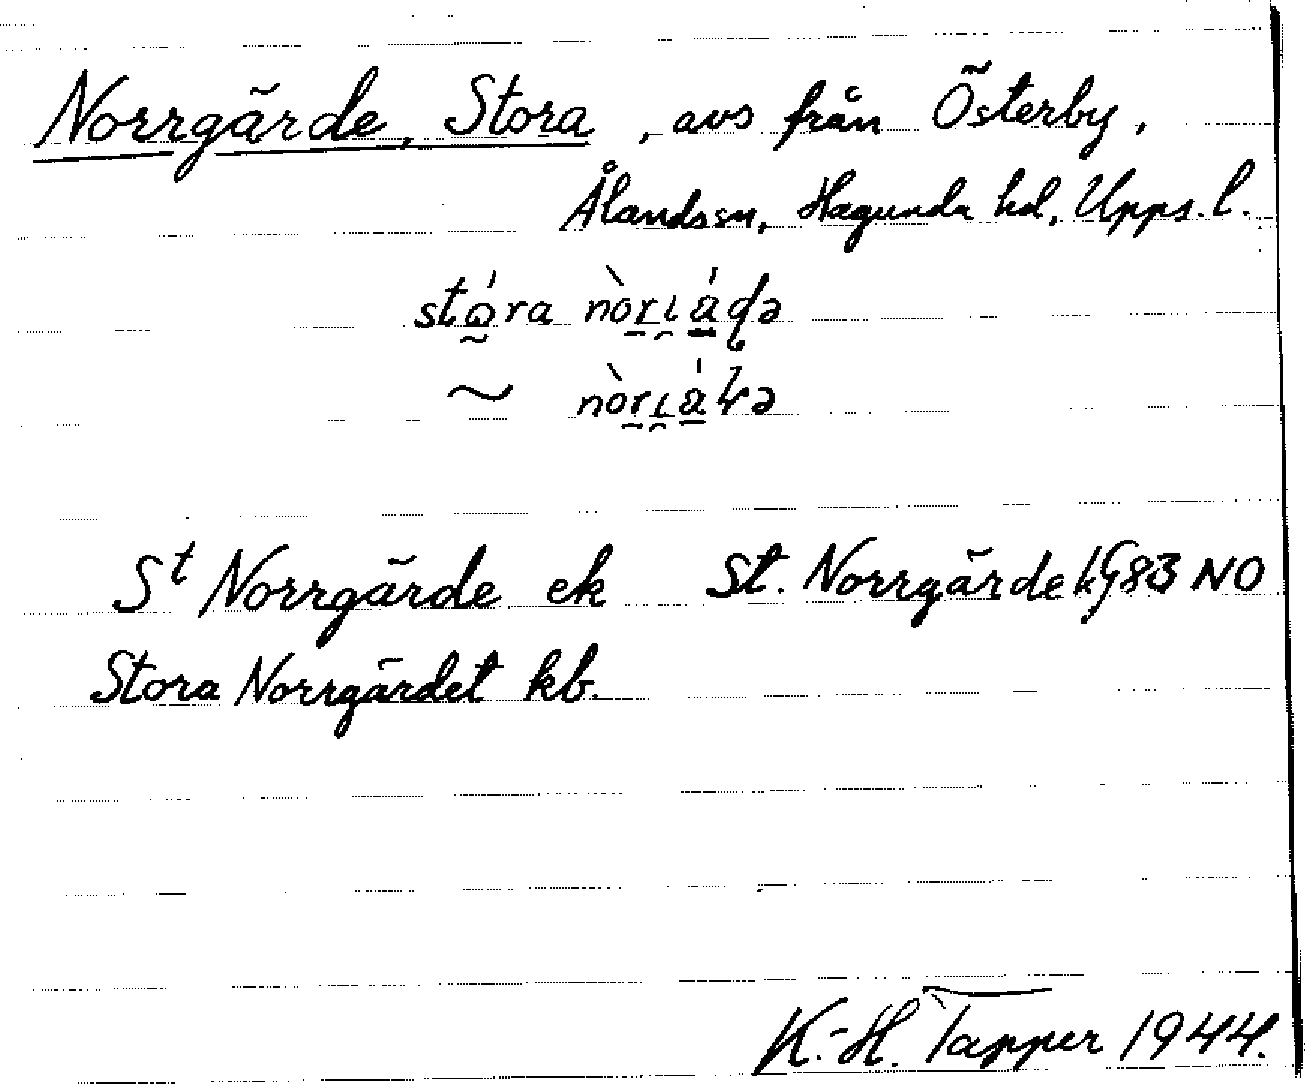 Norrgärde, Stora, avs från Österby,
Ålandssn, Hagunda hd, Upps. l.
St Norrgärde ek St. Norrgärde kg 83 NO
Stora Norrgärdet kb.
K.-H. Tapper 1944.